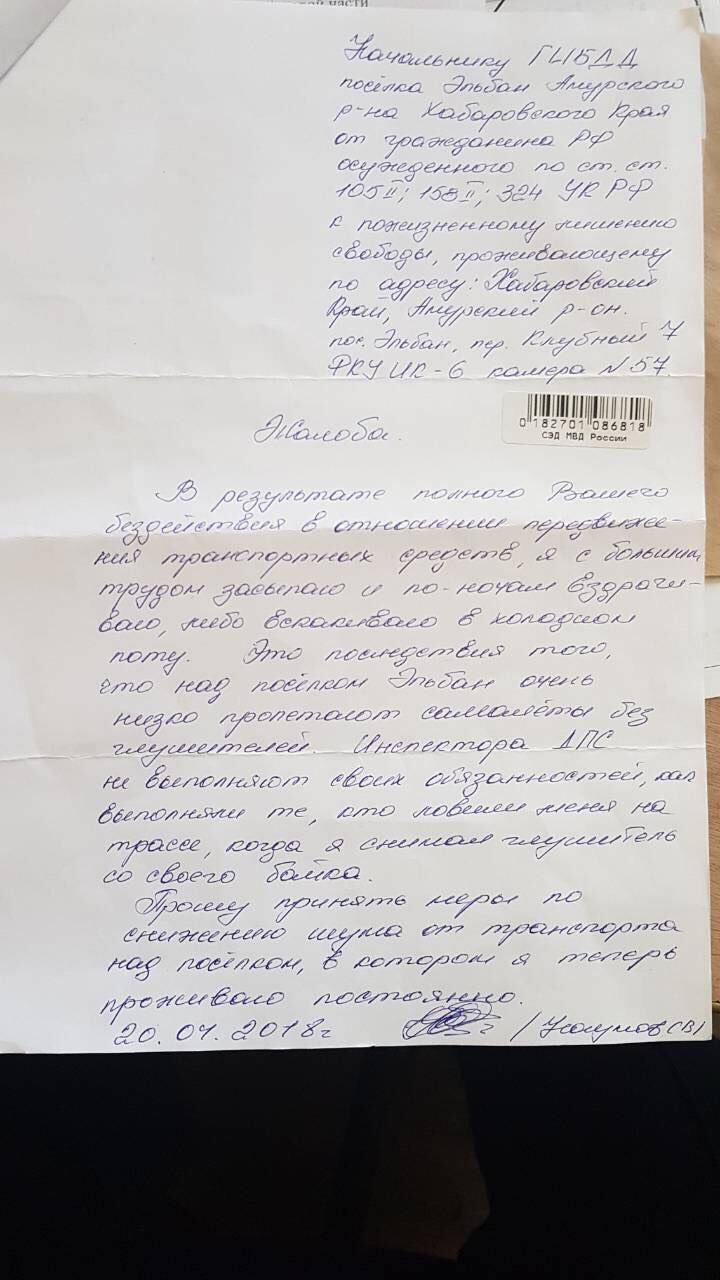 Начальнику ГИБДД
посёлка Эльбан Амурского
р-на Хабаровского Края
от гражданина РФ
осужденного по ст. ст.
105 II; 158 II; 324 УК РФ
к пожизненному лишению
свободы, проживающему
по адресу: Хабаровский
Край, Амурский р-он.
пос. Эльбан, пер. Клубный 7
ФКУ ИК-6 камера N 57.
0 182701 086818
СЭД МВД России
Жалоба.
В результате полного Вашего
бездействия в отношении передвиже-
ния транспортных средств, я с большим
трудом засыпаю и по-ночам вздраги-
ваю, либо вскакиваю в холодном
поту. Это последствия того,
что над посёлком Эльбан очень
низко пролетают самолёты без
глушителей. Инспектора ДПС
не выполняют своих обязанностей, как
выполняли те, кто ловили меня на
трассе, когда я снимал глушитель
со своего байка.
Прошу принять меры по
снижению шума от транспорта
над посёлком, в котором я теперь
проживаю постоянно.
20.04.2018г